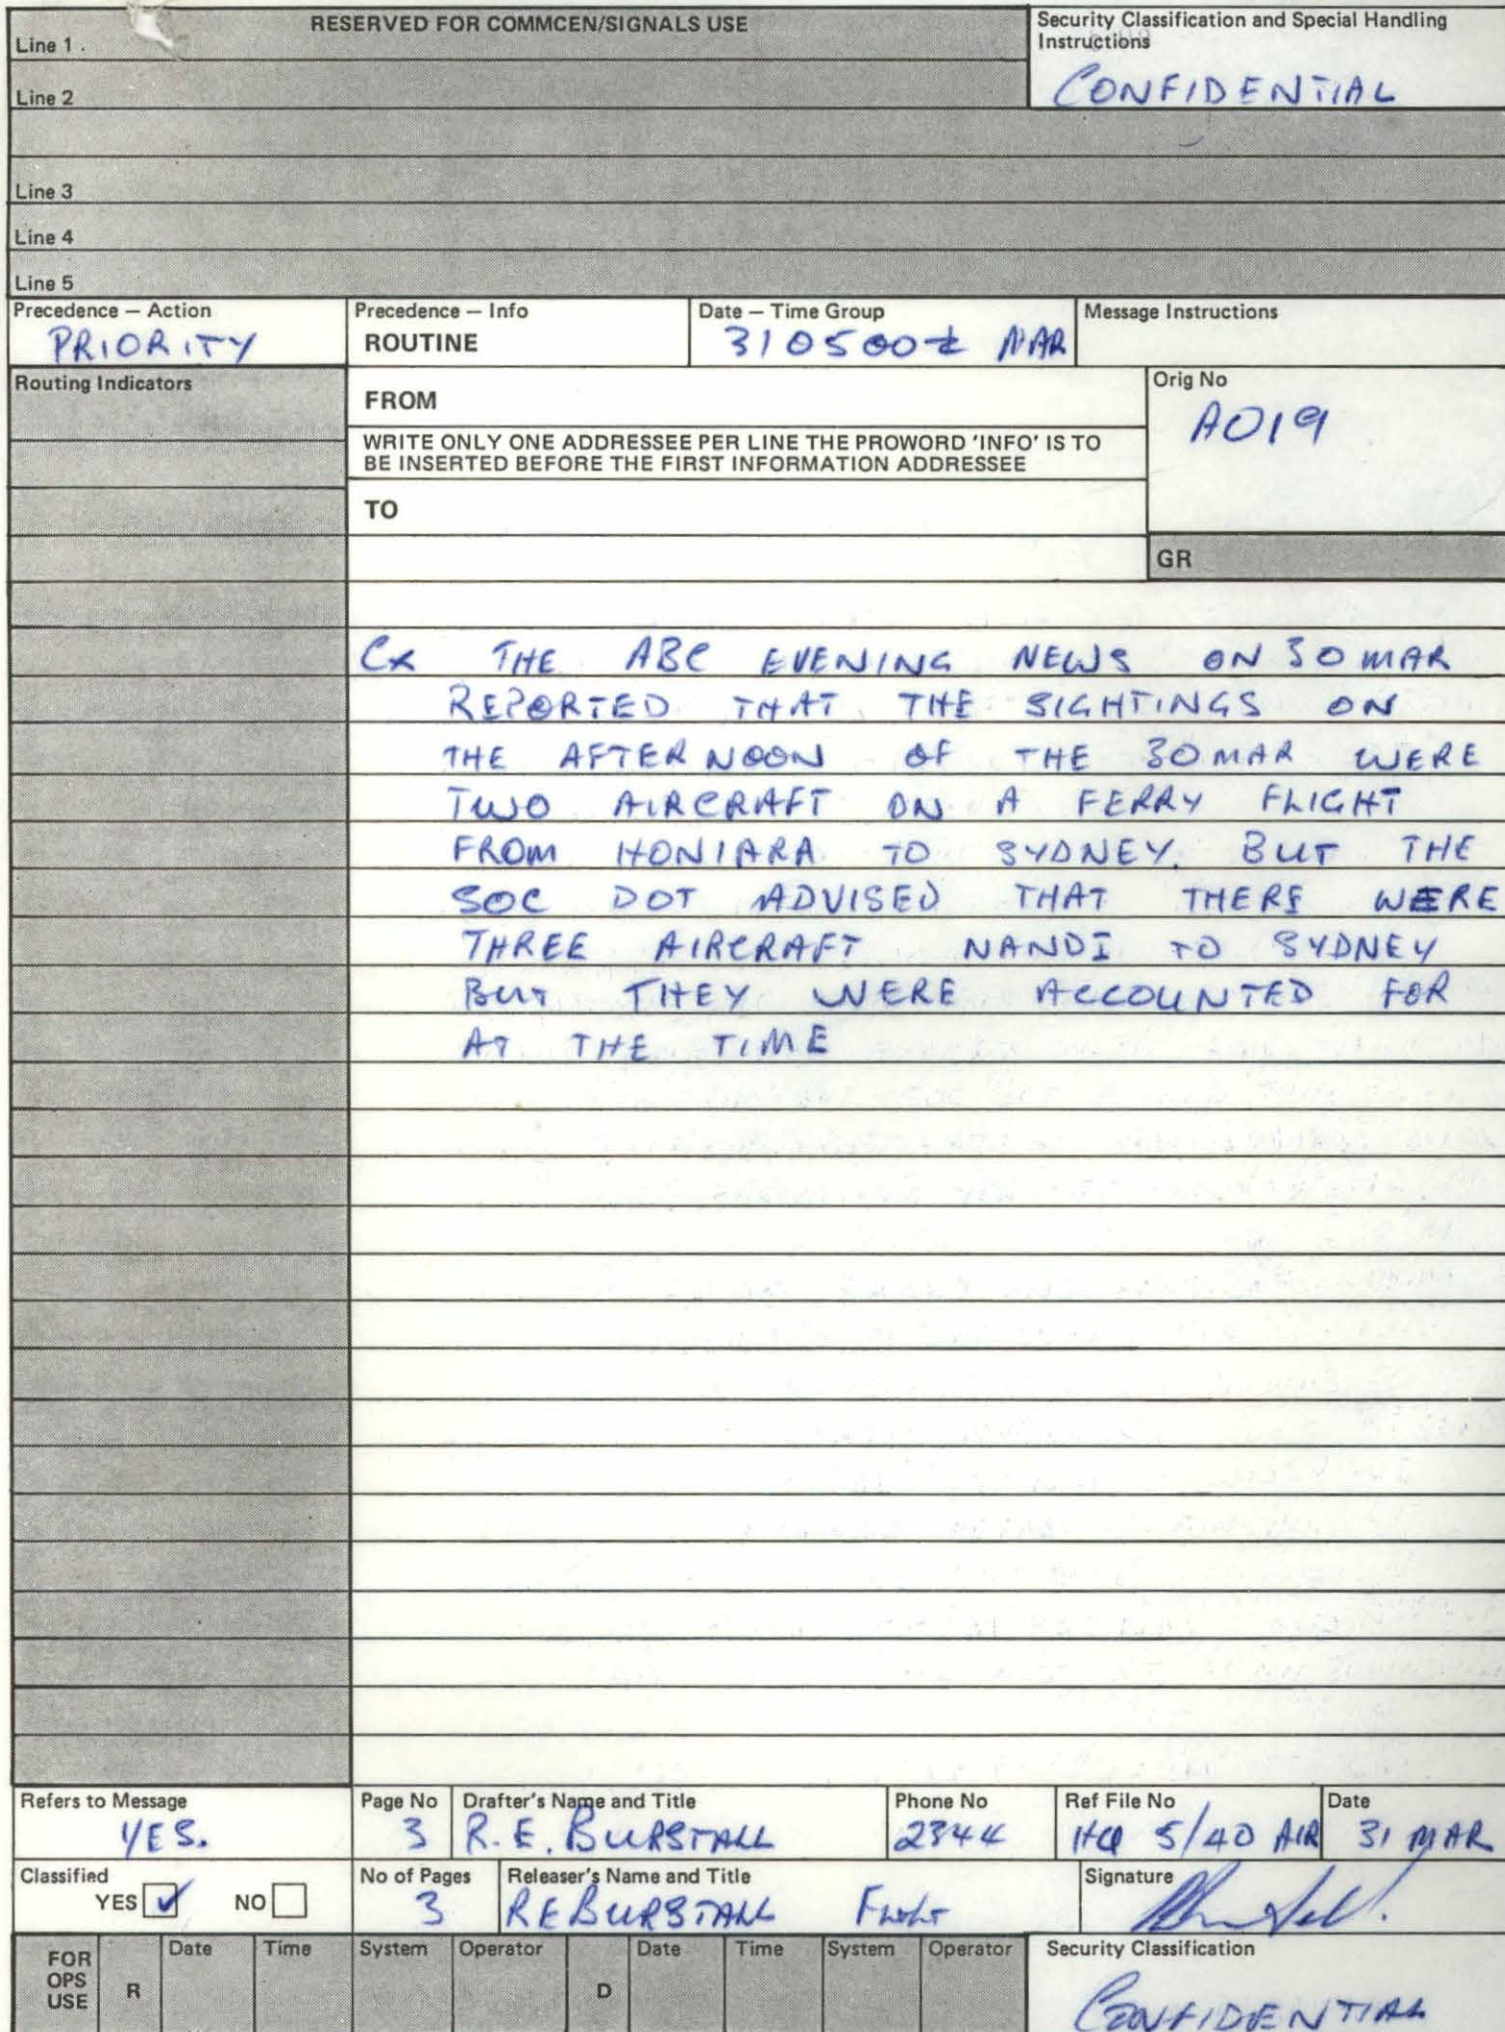 RESERVED FOR COMMCEN/SIGNALS USE
Line 1
Security Classification and Special Handling
Instructions
CONFIDENTIAL
Line 2
Line 3
Line 4
Line 5
Precedence — Action
PRIORITY
Precedence — Info
ROUTINE
Date — Time Group
310500Z MAR
Message Instructions
Routing Indicators
FROM
Orig No
A019
WRITE ONLY ONE ADDRESSEE PER LINE THE PROWORD 'INFO' IS TO
BE INSERTED BEFORE THE FIRST INFORMATION ADDRESSEE
TO
GR
Cx THE ABC EVENING NEWS ON 30 MAR
REPORTED THAT THE SIGHTINGS ON
THE AFTERNOON OF THE 30 MAR WERE
TWO AIRCRAFT ON A FERRY FLIGHT
FROM HONIARA TO SYDNEY. BUT THE
SOC DOT ADVISED THAT THERE WERE
THREE AIRCRAFT NANDI TO SYDNEY
BUT THEY WERE ACCOUNTED FOR
AT THE TIME
Refers to Message
YES.
Page No
3
Drafter's Name and Title
R. E. BURSTALL
Phone No
2344
Ref File No
HQ 5/40 AIR
Date
31 MAR
Classified
YES ✓ NO
No of Pages
3
Releaser's Name and Title
RE BURSTALL
Signature
FOR
OPS
USE
R
Date
Time
System
Operator
D
Date
Time
System
Operator
Security Classification
CONFIDENTIAL